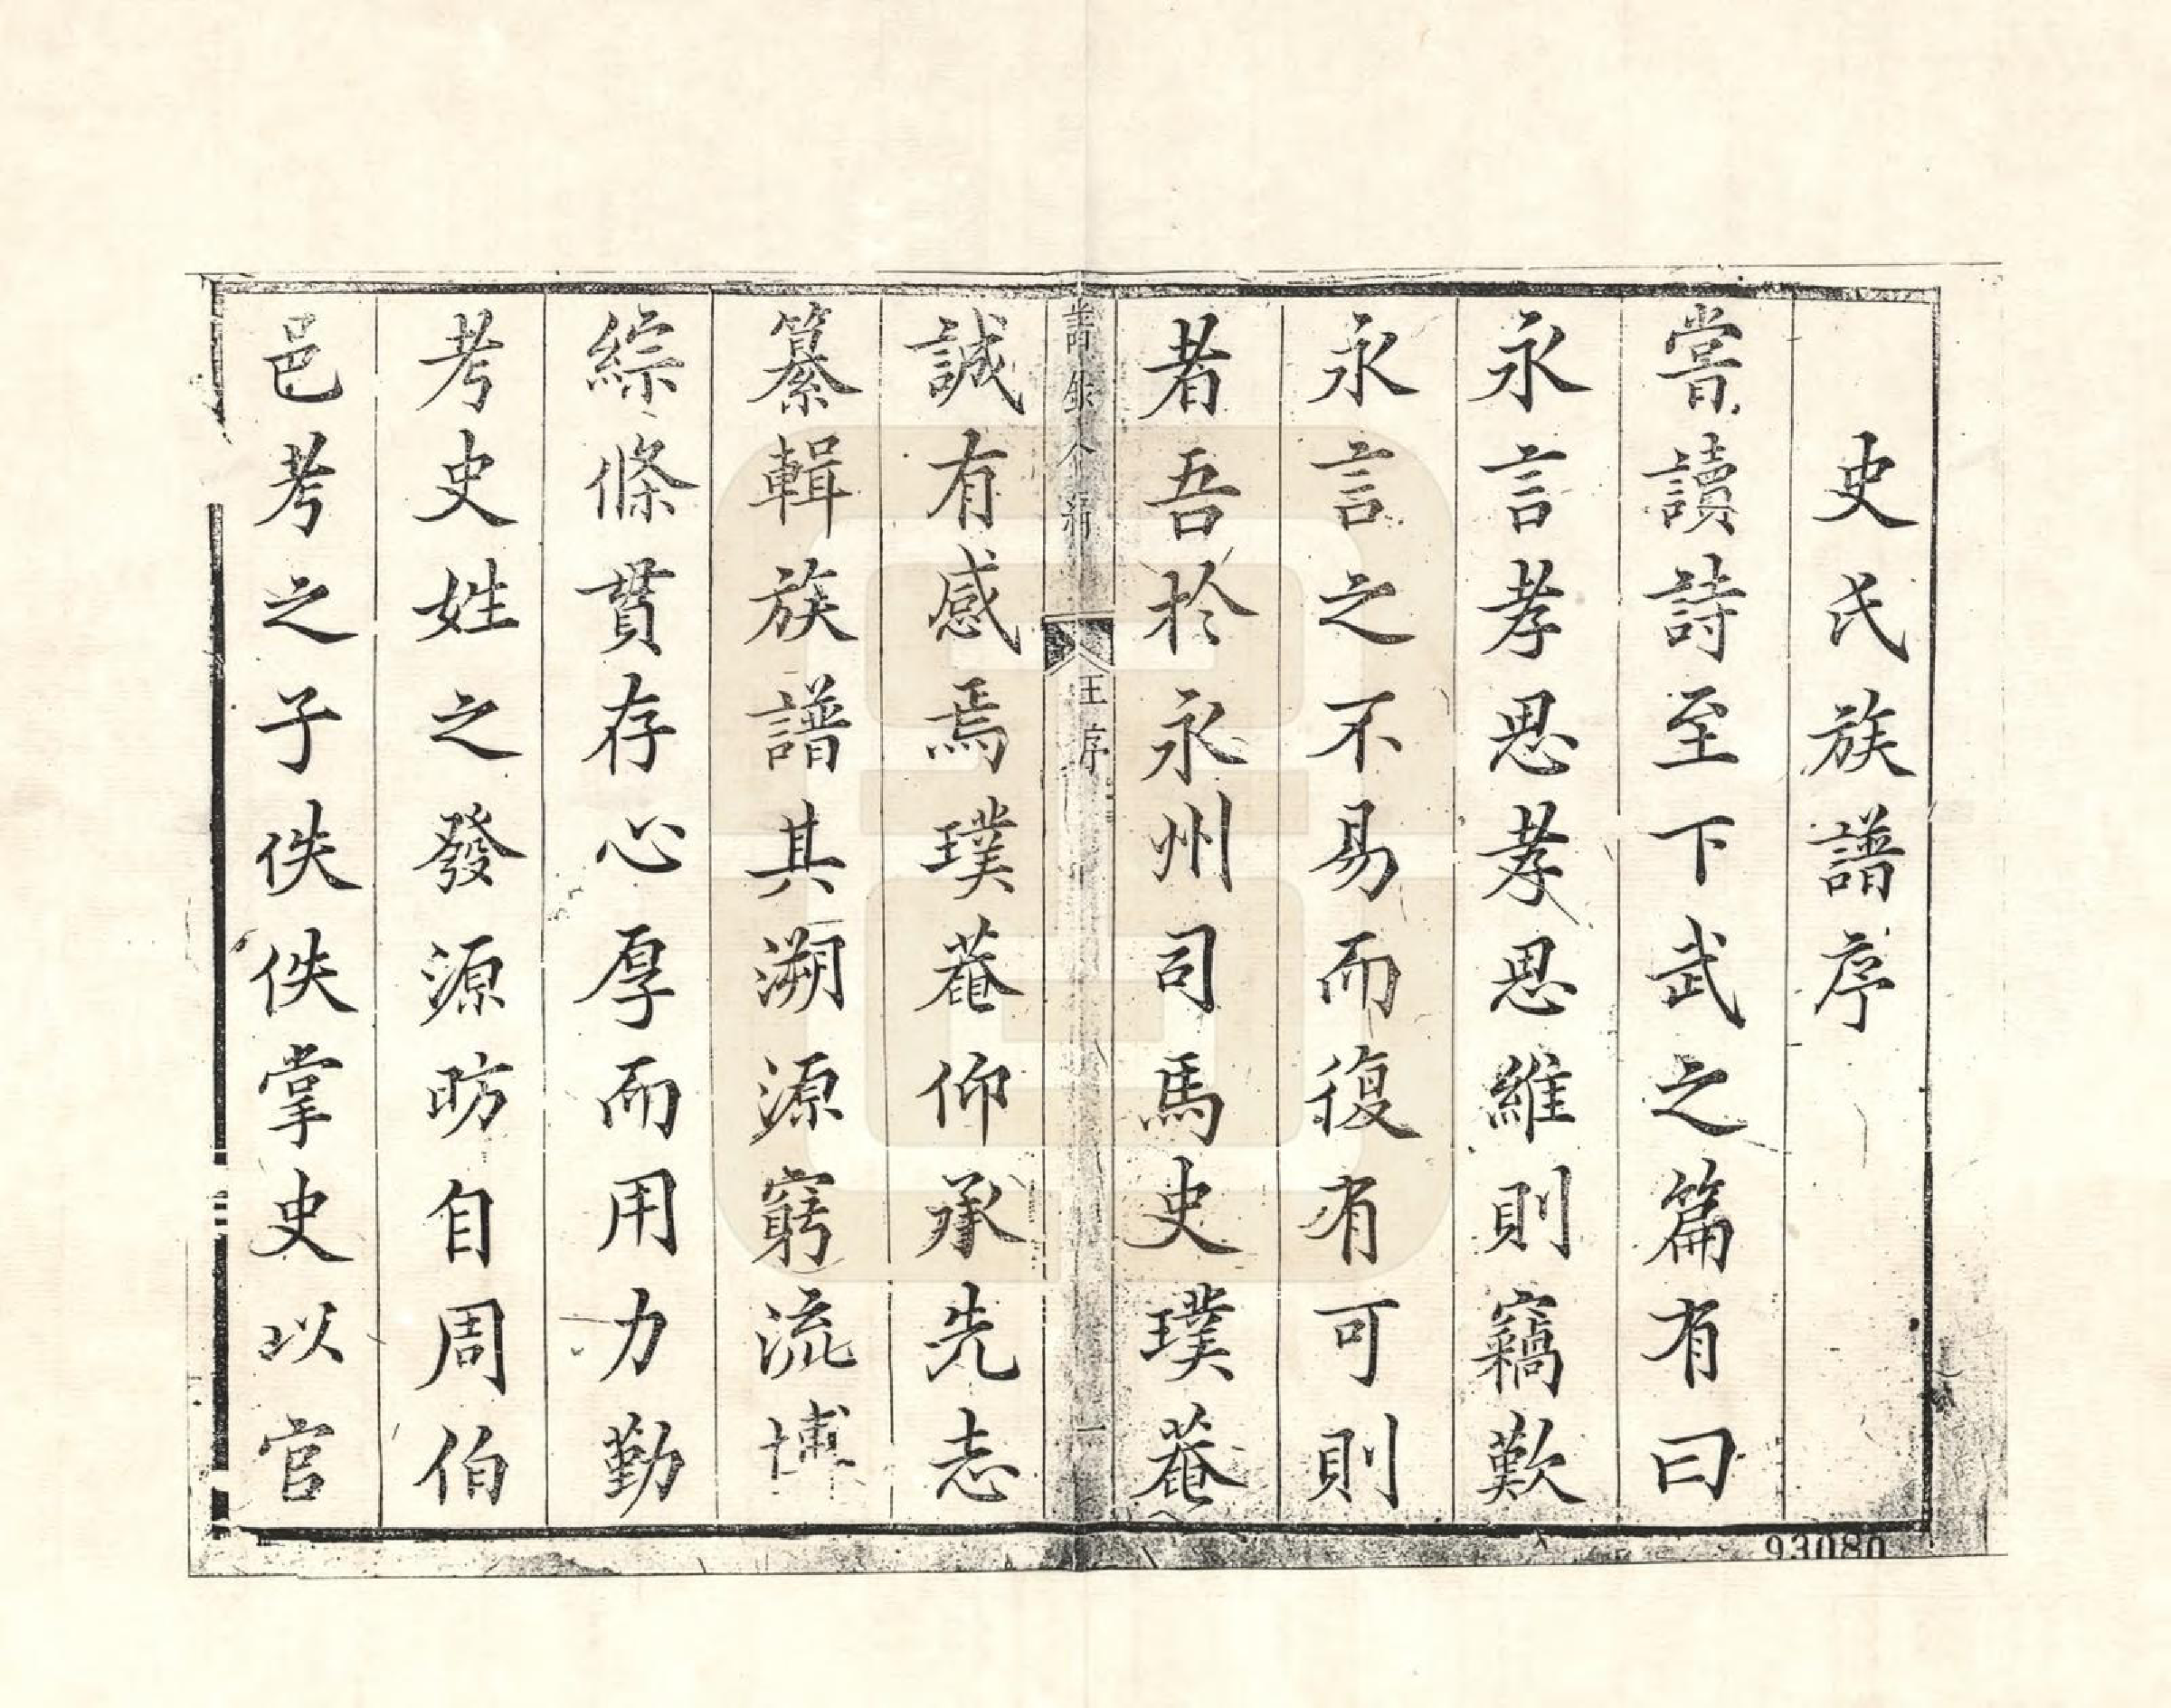 史氏族譜序
嘗讀詩至下武之篇有曰
永言孝思孝思維則竊歎
永言之不易而復有可則
者吾於永州司馬史璞菴
譜錄合新
王序
一
誠有感焉璞菴仰承先志
纂輯族譜其溯源窮流博
綜條貫存心厚而用力勤
考史姓之發源昉自周伯
邑考之子佚佚掌史以官
93080